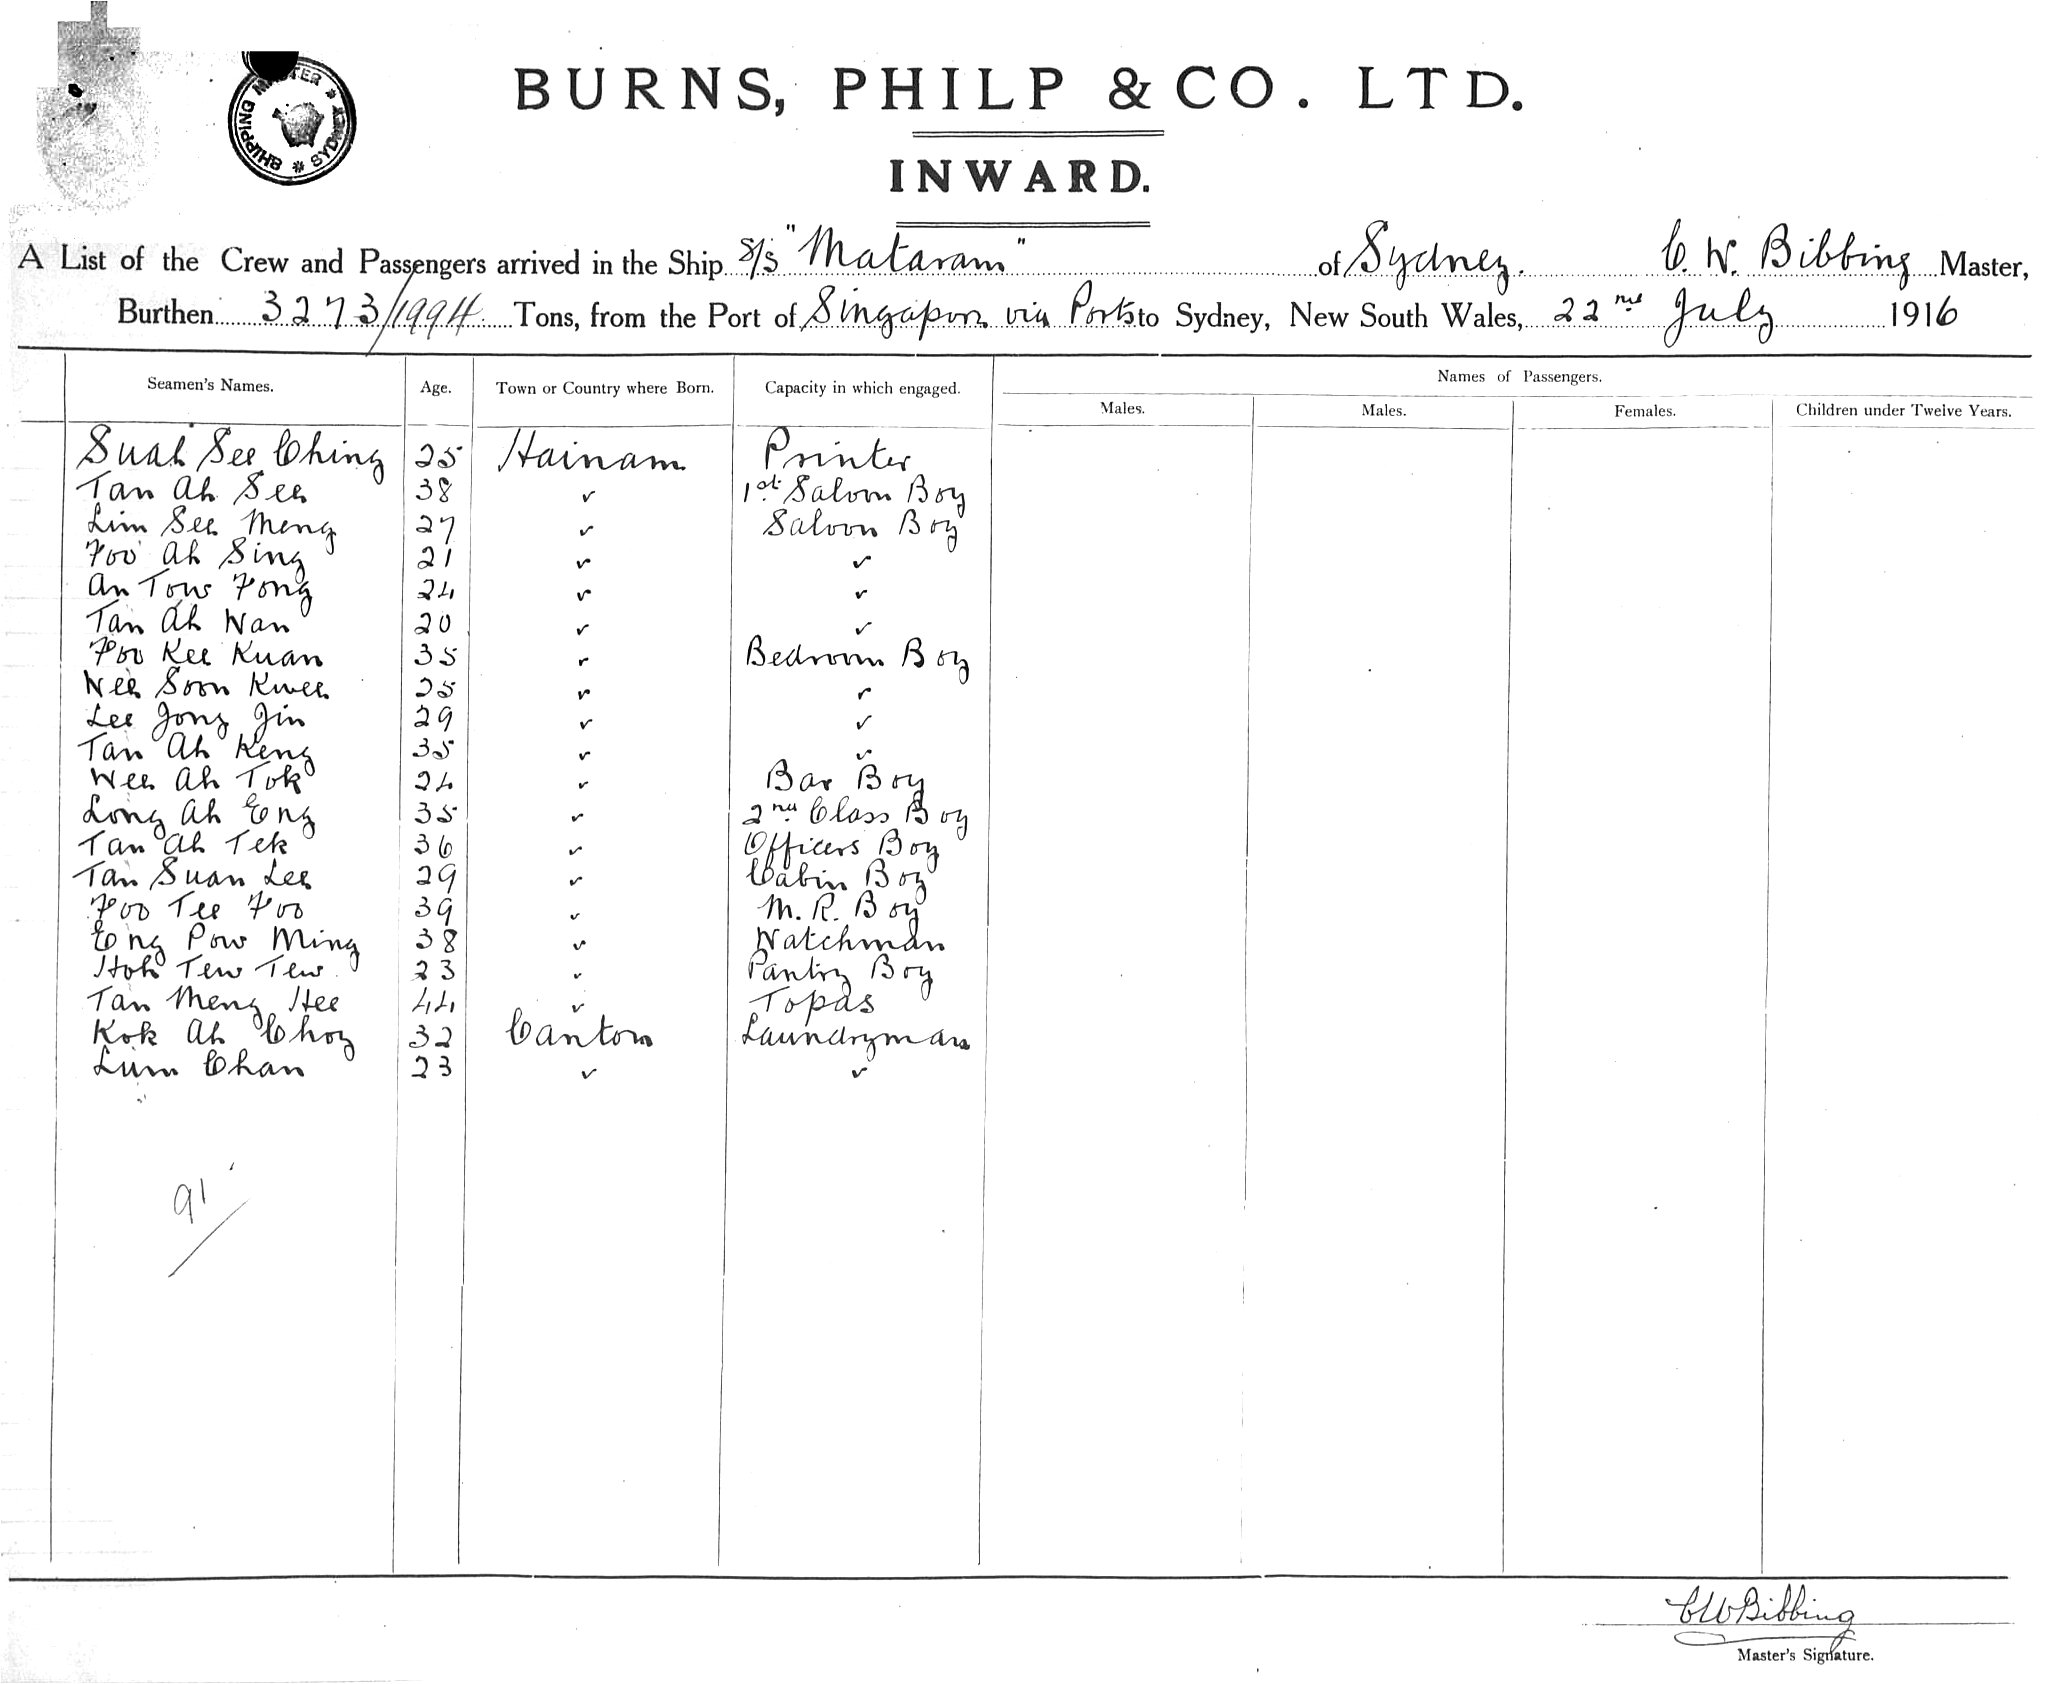 SHIPPING MASTER * SYDNEY *
BURNS, PHILP & CO. LTD.
INWARD.
A List of the Crew and Passengers arrived in the Ship S/S "Mataram" of Sydney. C. W. Bibbing Master,
Burthen 3273/1994 Tons, from the Port of Singapore via Ports to Sydney, New South Wales, 22nd July 1916
Seamen's Names. Age. Town or Country where Born. Capacity in which engaged. Names of Passengers.
Males. Males. Females. Children under Twelve Years.
Suah See Ching 25 Hainam Printer
Tan Ah See 38 " 1st Saloon Boy
Lim See Meng 27 " Saloon Boy
Foo Ah Sing 21 " "
An Tow Fong 24 " "
Tan Ah Wan 20 " "
Foo Kee Kuan 35 " Bedroom Boy
Wee Soon Kwee 25 " "
Lee Jong Jin 29 " "
Tan Ah Keng 35 " "
Wee Ah Tok 24 " Bar Boy
Long Ah Eng 35 " 2nd Class Boy
Tan Ah Tek 36 " Officers Boy
Tan Suan Lee 29 " Cabin Boy
Foo Tee Foo 39 " M. R. Boy
Eng Pow Ming 38 " Watchman
Hok Tew Tew 23 " Pantry Boy
Tan Meng Hee 44 " Topas
Kok Ah Choy 32 Canton Laundryman
Lum Chan 23 " "
91
CWBibbing
Master's Signature.